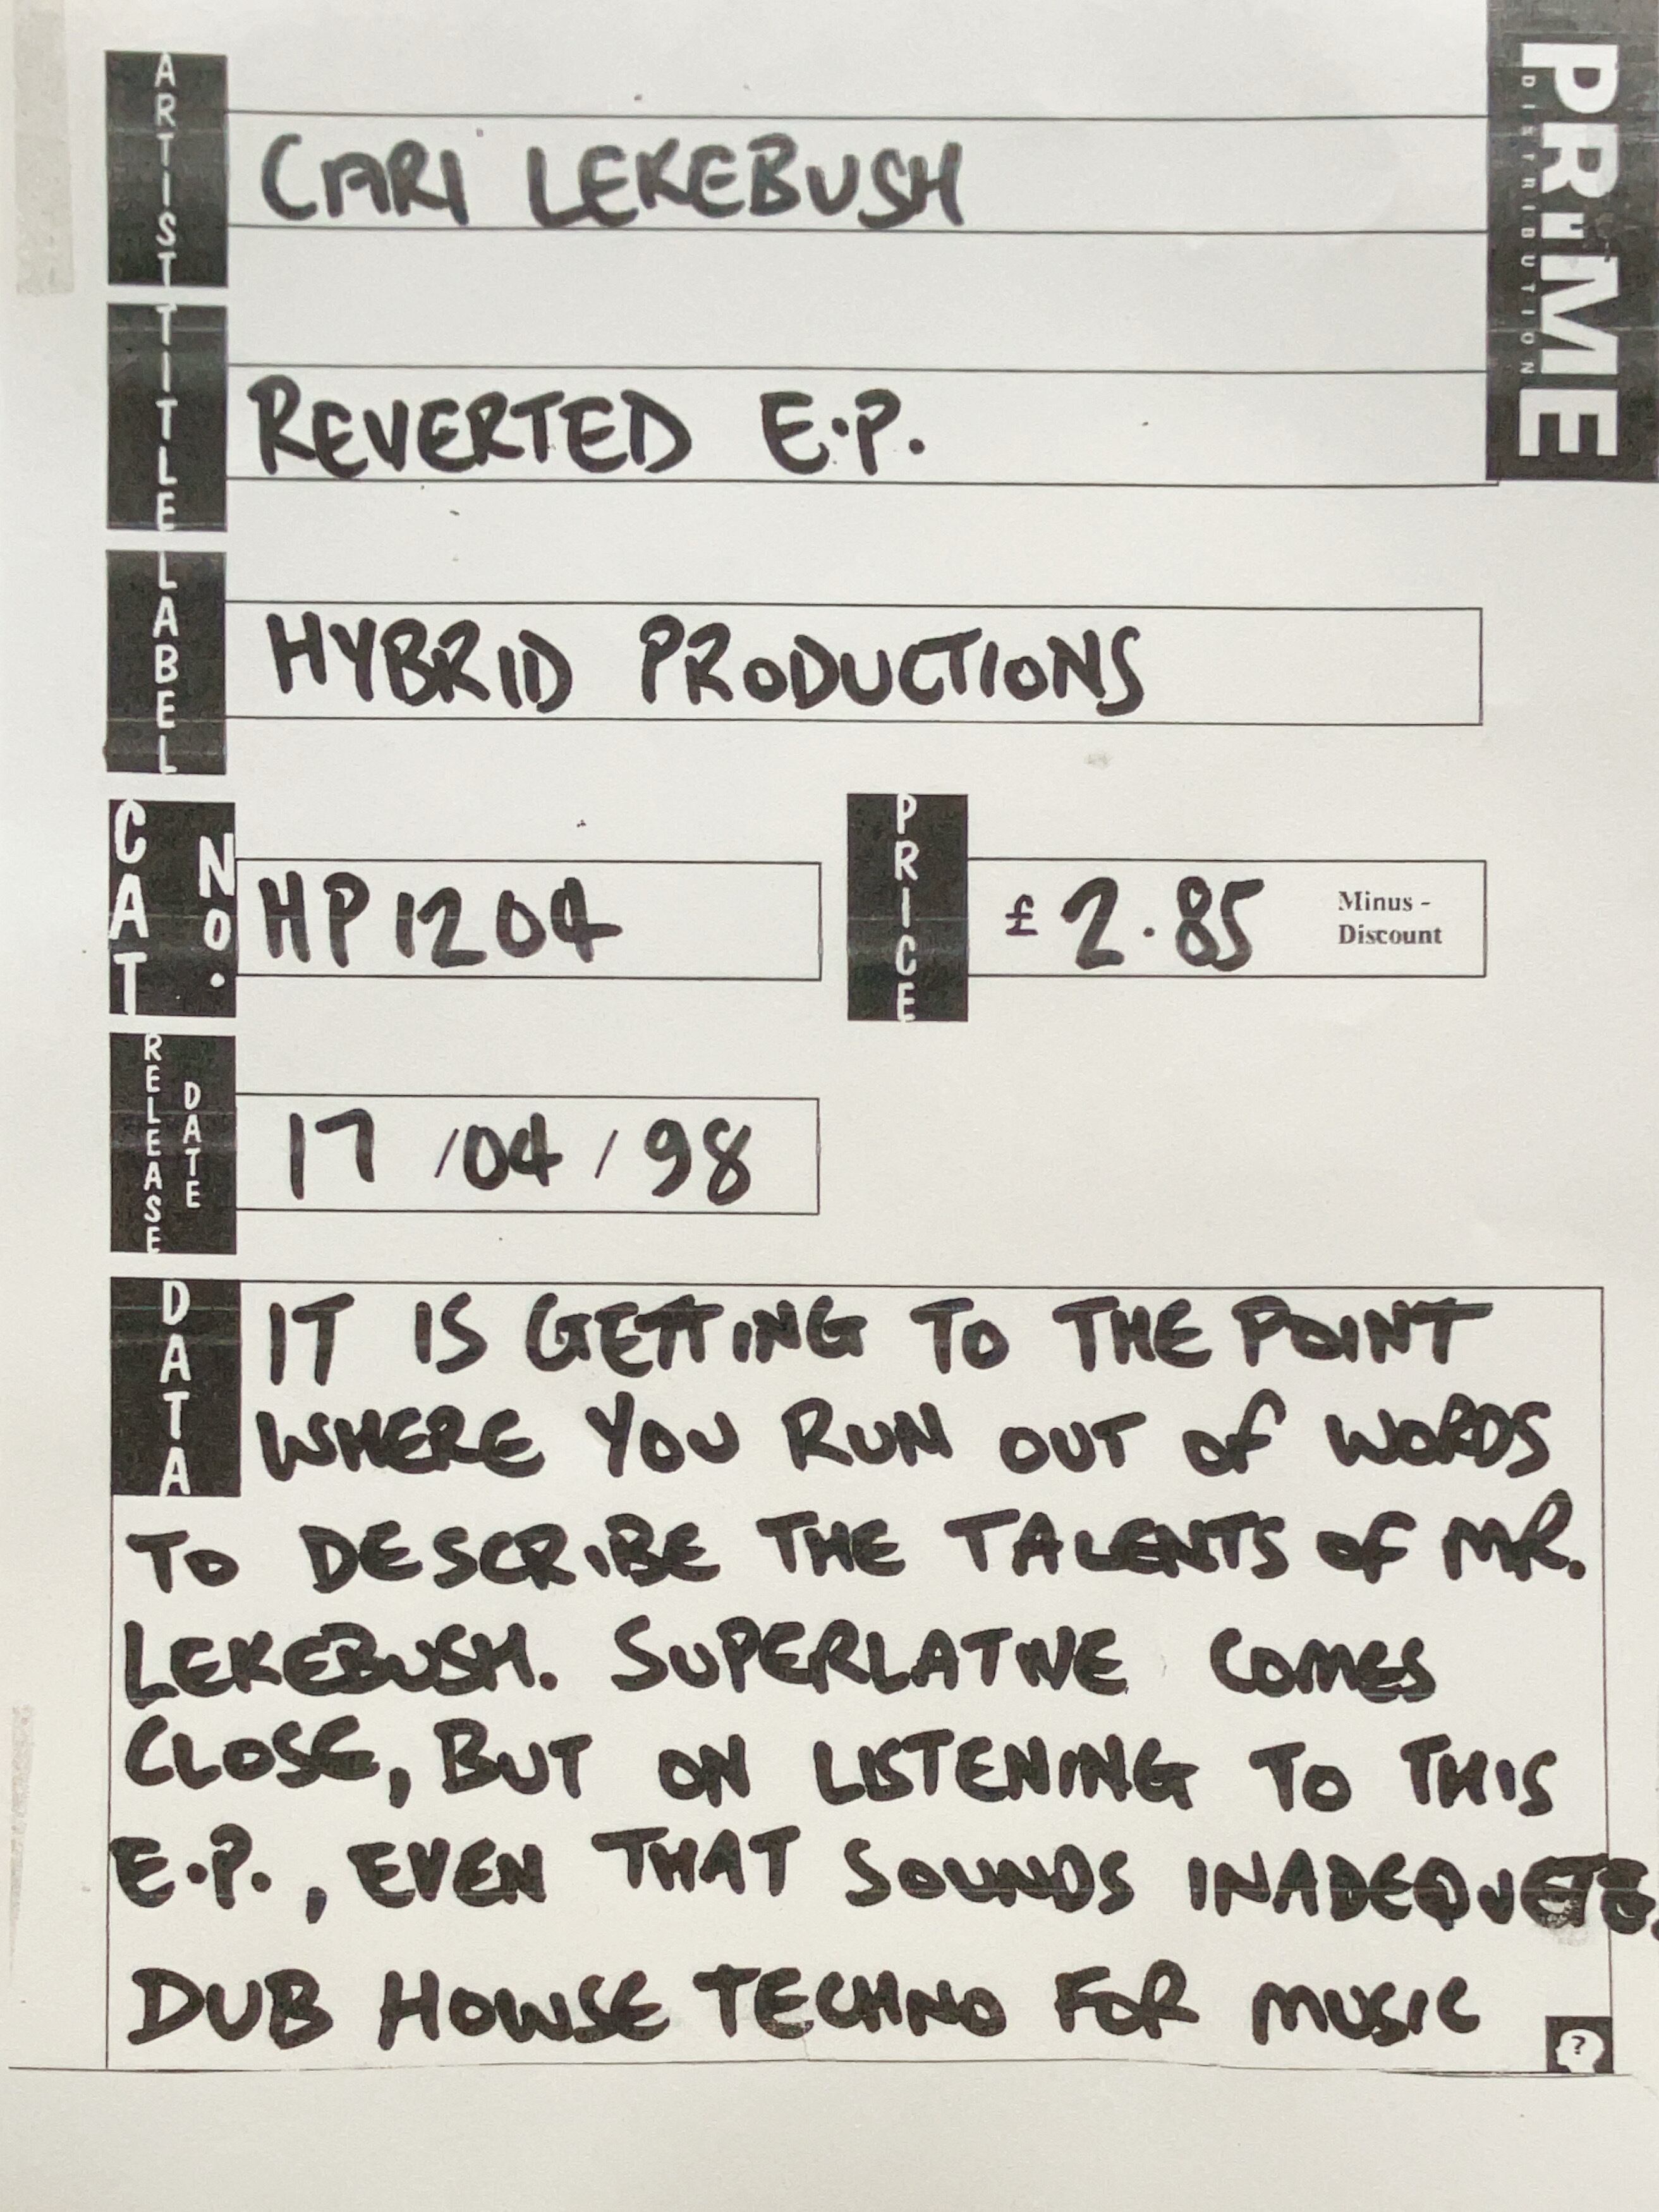 PRIME
DISTRIBUTION
ARTIST
CARI LEKEBUSH
TITLE
REVERTED E.P.
LABEL
HYBRID PRODUCTIONS
CAT NO.
HP1204
PRICE
£2.85
Minus -
Discount
RELEASE DATE
17/04/98
DATA
IT IS GETTING TO THE POINT
WHERE YOU RUN OUT OF WORDS
TO DESCRIBE THE TALENTS OF MR.
LEKEBUSH. SUPERLATIVE COMES
CLOSE, BUT ON LISTENING TO THIS
E.P., EVEN THAT SOUNDS INADEQUETE.
DUB HOUSE TECHNO FOR MUSIC
?